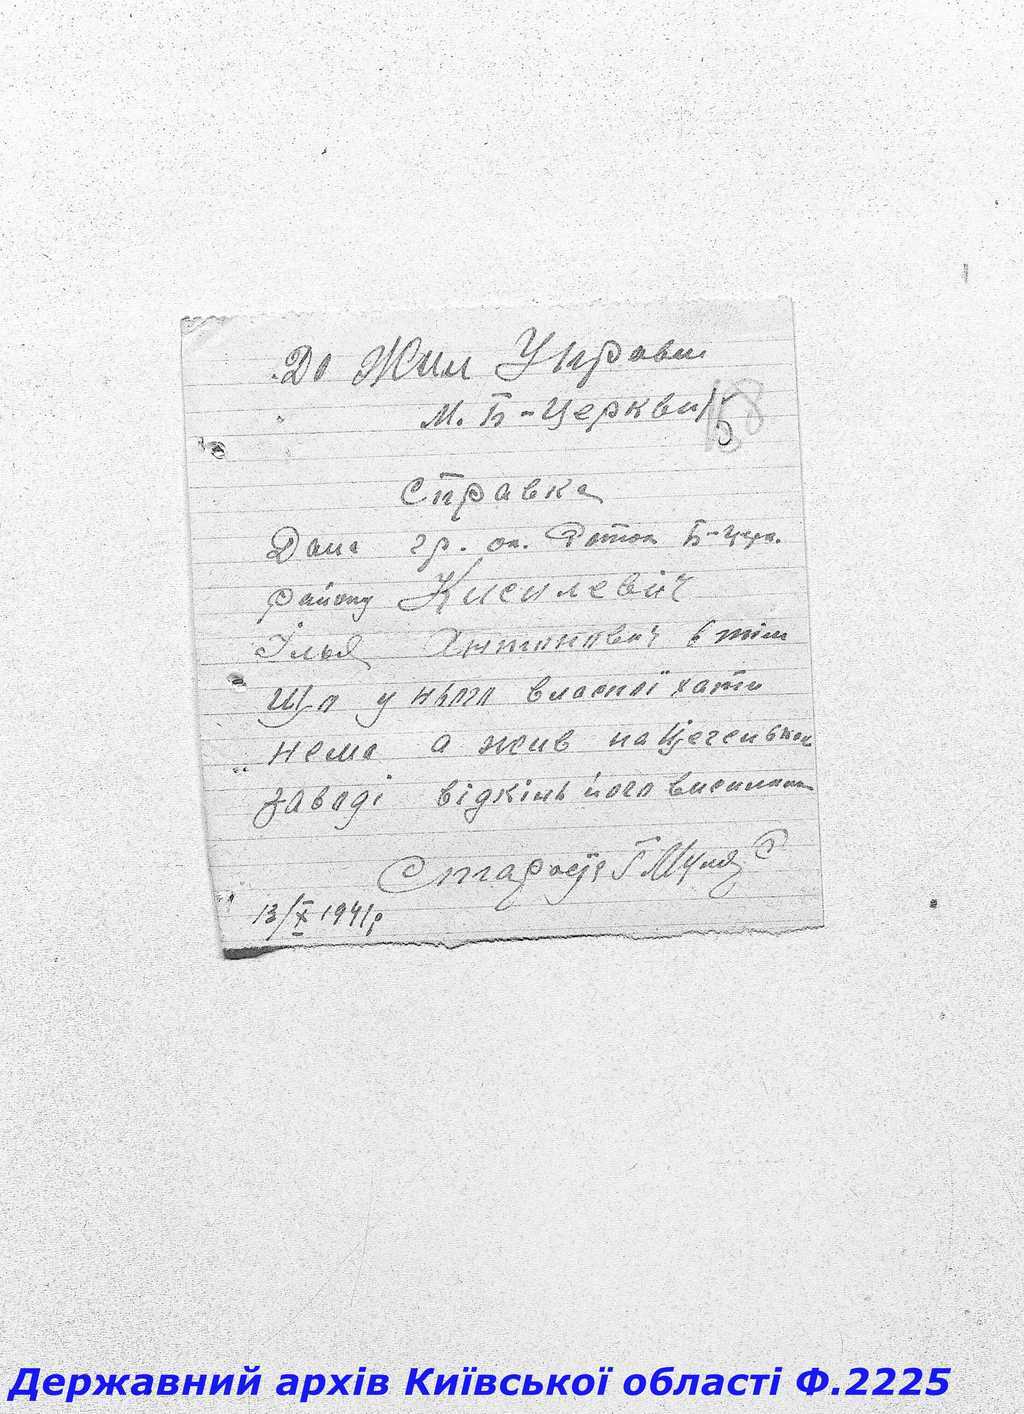 До Жил Управи
м. Б-Церкви
Справка
Дана гр. ок. Роток Б-Церк.
району Кисилевич
Ілья Антонович в тім
Що у нього власної хати
нема а жив на
заводі відкіль його виселили
Староста
13/X 1941р
Державний архів Київської області Ф.2225